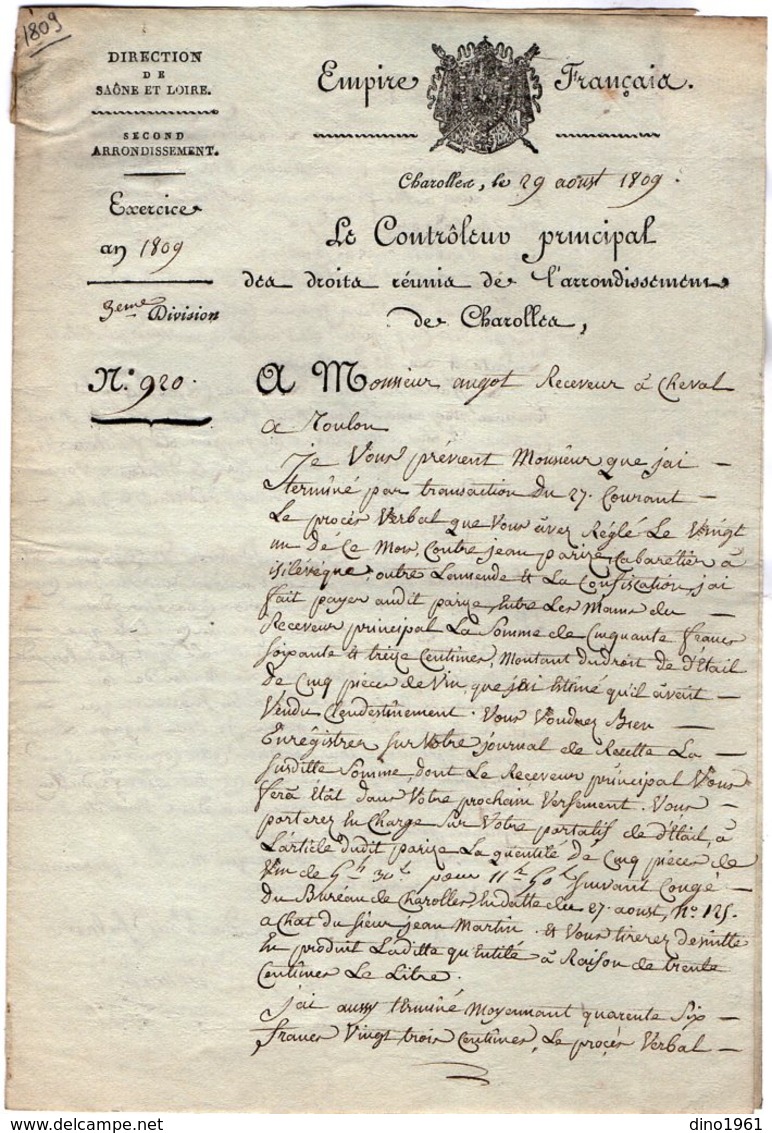 1809
DIRECTION
DE
SAÔNE ET LOIRE.
SECOND
ARRONDISSEMENT.
Exercice
an 1809
3eme Division
N.° 920.
Empire Français.
Charolles, le 29 aoust 1809.
Le Contrôleur principal
des droits réunis de l'arrondissement
de Charolles,
A Monsieur angot Receveur à Cheval
a Toulon
je Vous prévient Monsieur que j'ai
terminé par transaction du 27. Courant
Le procès Verbal que Vous avez Réglé Le Vingt
un de Ce Mois, Contre jean parize, Cabaretier à
isilévêque, outre Lamende et La Confiscation, j'ai
fait payer audit parize, Entre Les Mains du
Receveur principal La Somme de Cinquante francs
Soixante et treize Centimes, Montant Du droit de détail
De Cinq pièces de Vin, que j'ai Estimé qu'il avait
Vendu Clendestinement. Vous Voudrez Bien
Enrégistrer Sur Votre journal de Recette La
Susditte Somme, dont Le Receveur principal Vous
fera État dans Votre prochain Versement. Vous
porterez En Charge Sur Votre portatif de détail, à
L'article dudit parize La quentité de Cinq pièces de
Vin de pour Suivant Congé
Du Bureau de Charolles, En datte du 27. aoust, N.° 125.
achat du Sieur jean Martin. et Vous tirerez de suitte
En produit Laditte quentité à Raison de trente
Centimes Le Litre.
j'ai aussy terminé Moyennant quarente Six
francs Vingt trois Centimes, Le procès Verbal
dino1961